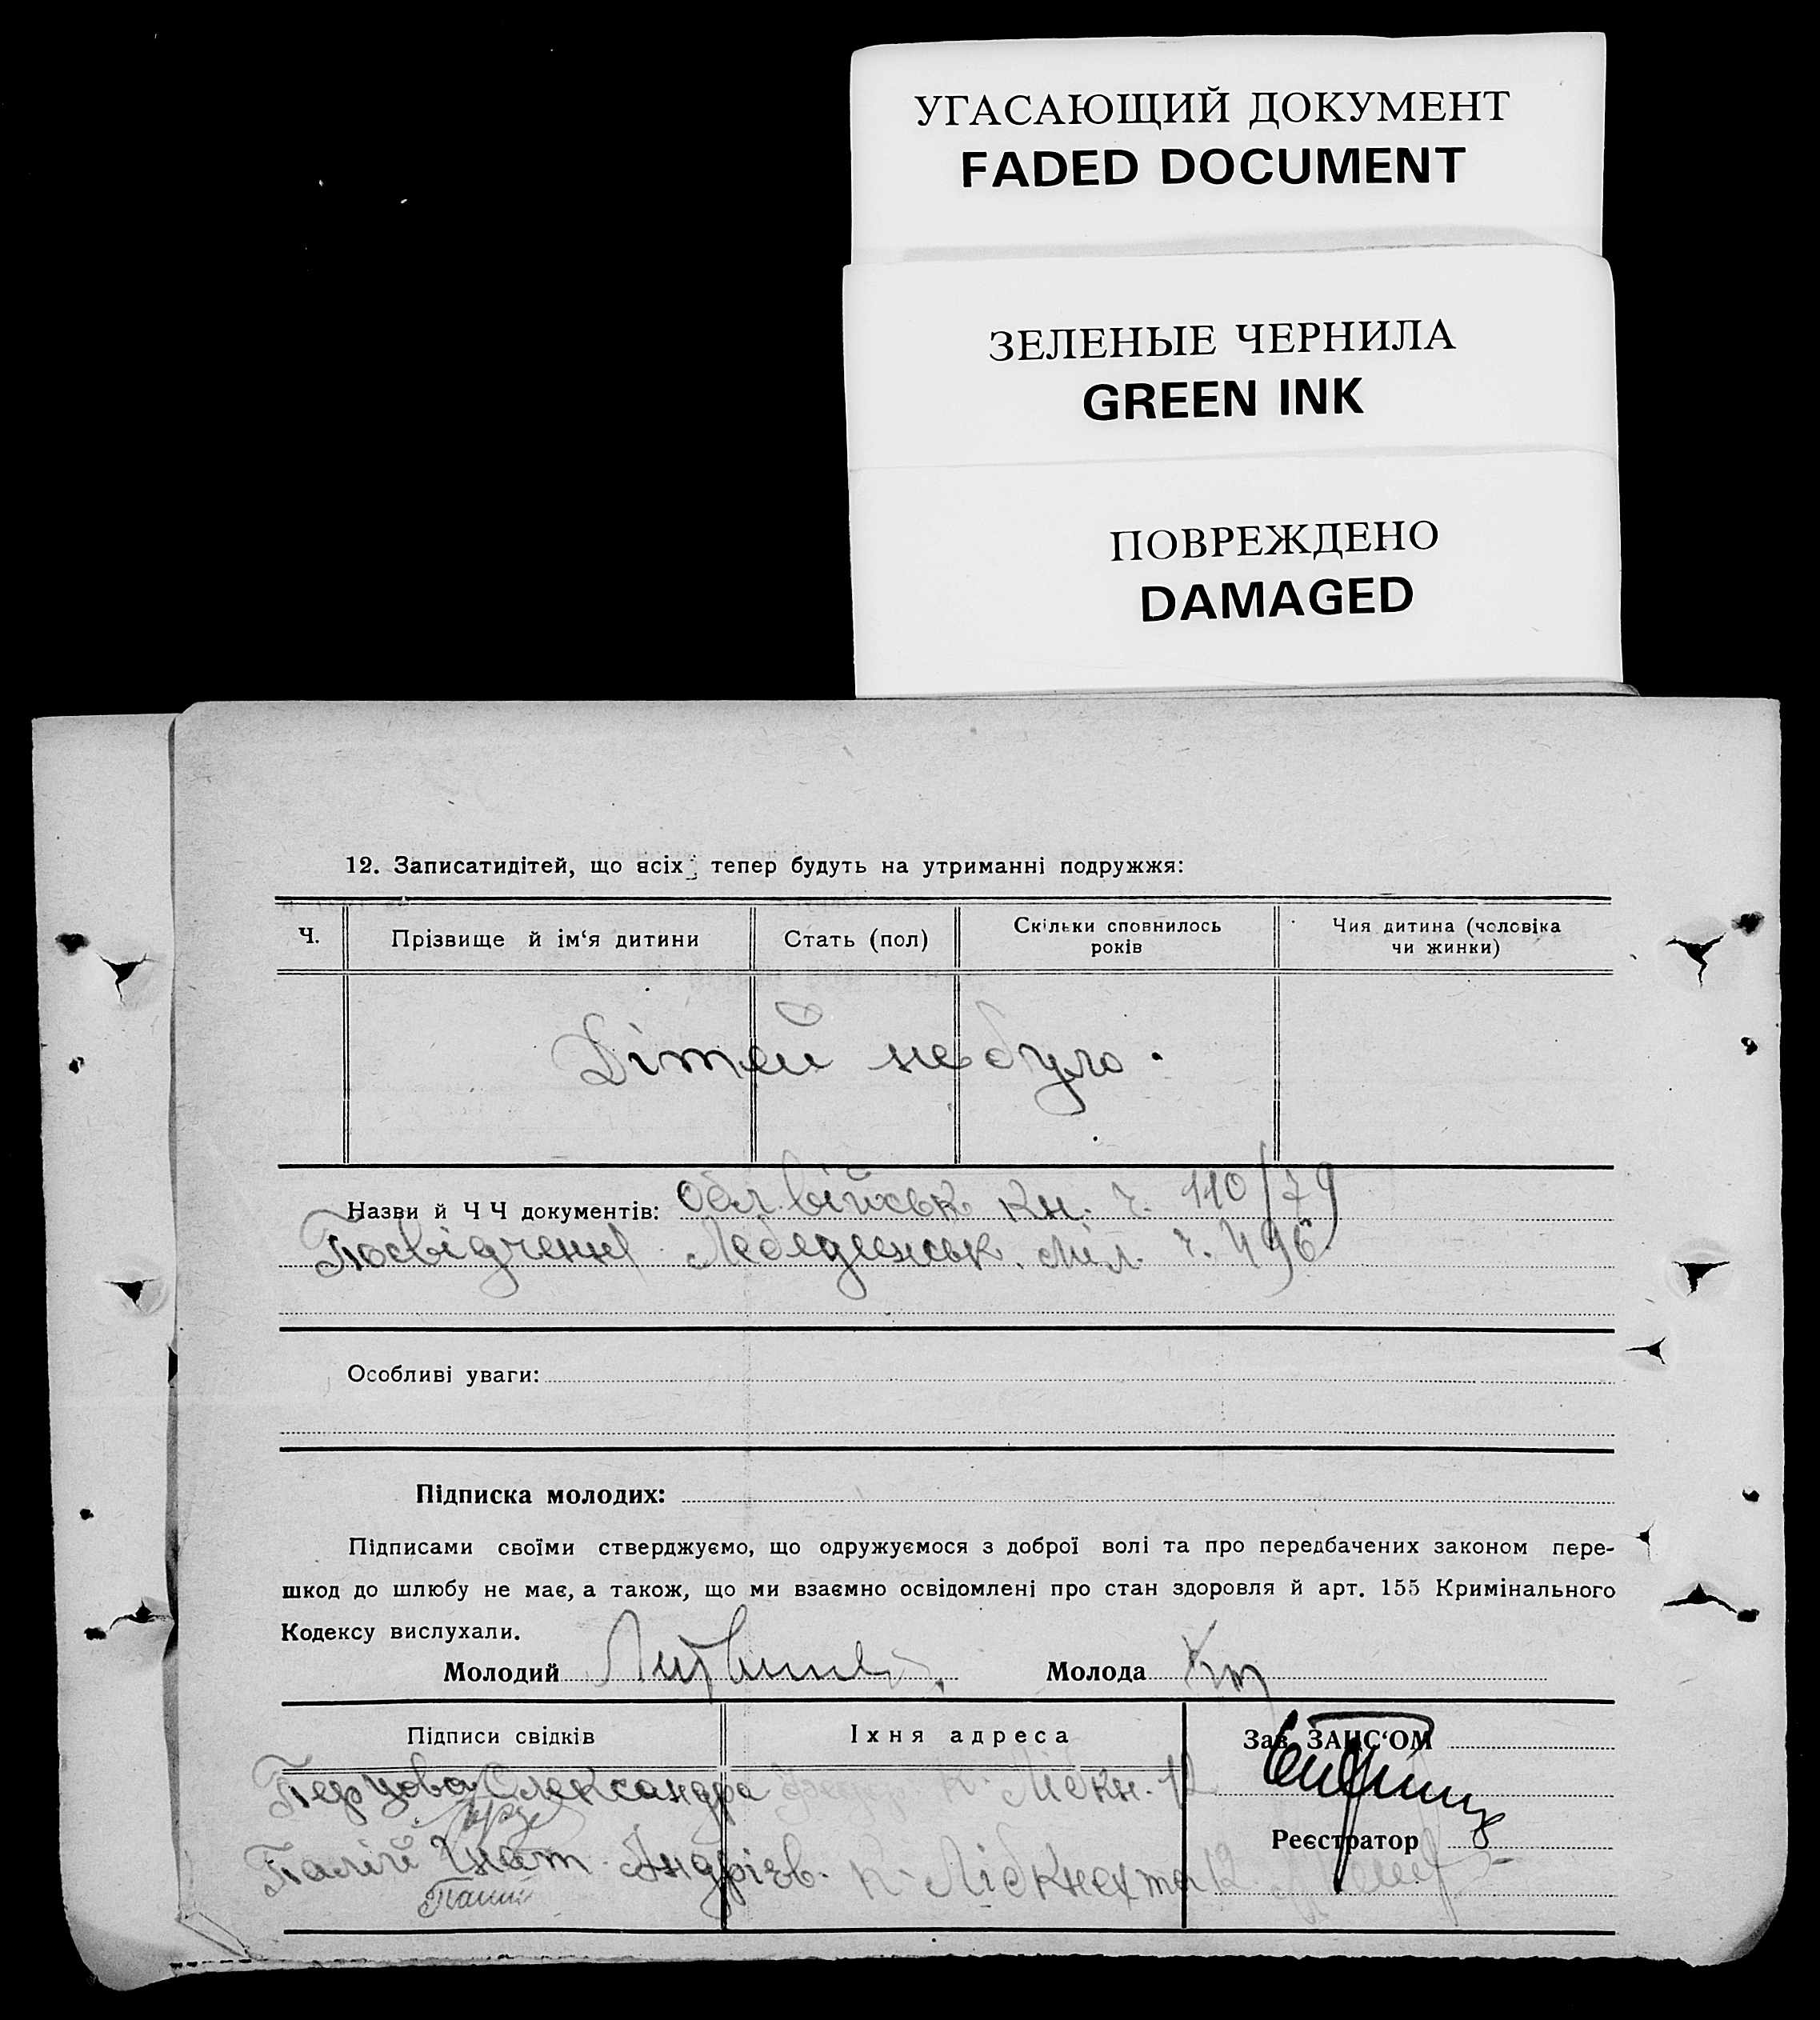 УГАСАЮЩИЙ ДОКУМЕНТ
FADED DOCUMENT
ЗЕЛЕНЫЕ ЧЕРНИЛА
GREEN INK
ПОВРЕЖДЕНО
DAMAGED
12. Записатидітей, що всіх тепер будуть на утриманні подружжя:
Ч.
Прізвище й ім‘я дитини
Стать (пол)
Скільки сповнилось
років
Чия дитина (чоловіка
чи жинки)
Дітей не було.
Назви й Ч Ч документів: Обл. військ кн. ч. 110/79
Посвідчення Лебединськ. міл. ч. 496
Особливі уваги:
Підписка молодих:
Підписами своїми стверджуємо, що одружуємося з доброї волі та про передбачених законом пере-
шкод до шлюбу не має, а також, що ми взаємно освідомлені про стан здоровля й арт. 155 Кримінального
Кодексу вислухали.
Молодий
Молода
Підписи свідків
Їхня адреса
Зав. ЗАЦС‘ОМ
Перцова Олександра К. Лібкн. 12
Реєстратор
Палій Гнат Андрієв. К. Лібкнехта 12
Палій